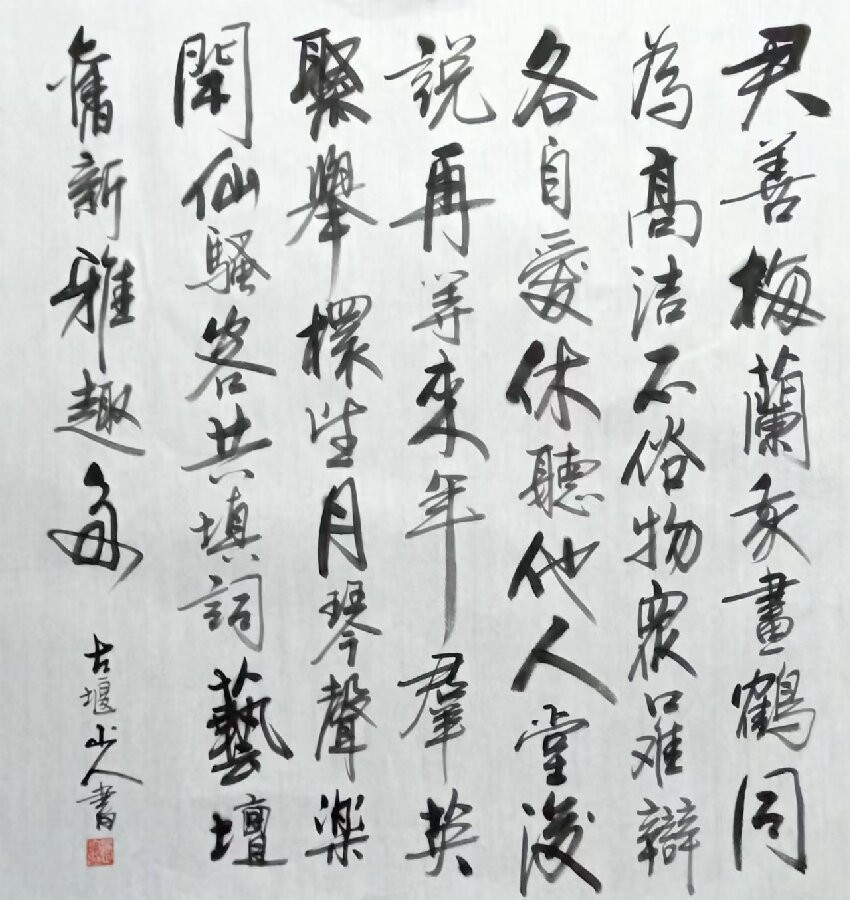 君善梅蘭我畫鶴同
為高洁不俗物眾口难辯
各自愛休聽他人堂後
説再等來年羣英
聚舉望月琴聲樂
閑仙騷客共填詞藝壇
奮新雅趣多
古堰山人書